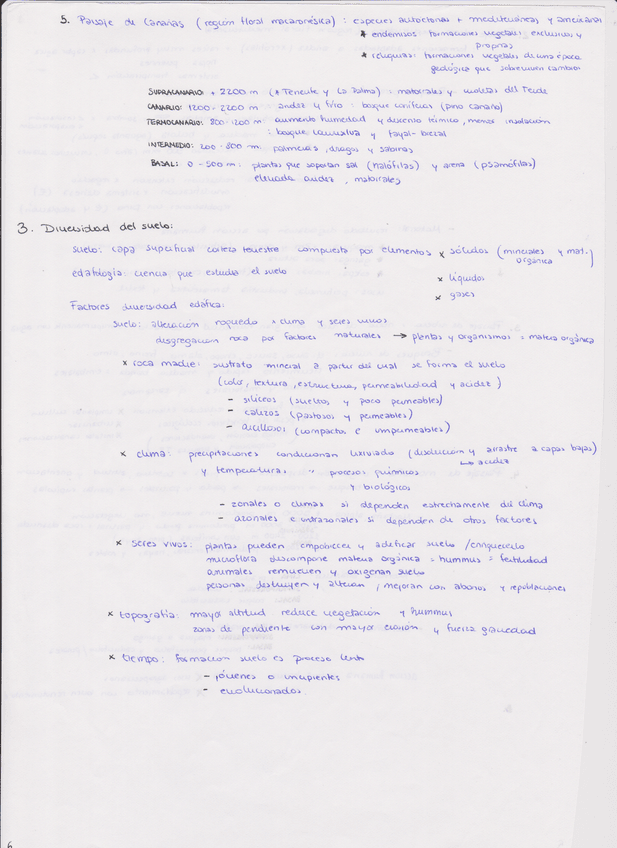 5. Paisaje de Canarias (región floral macaronésica) : especies autóctonas + mediterráneas y americanas
* endemismos : formaciones vegetales exclusivas y
propias
* reliquias : formaciones vegetales de una época
geológica que sobreviven cambios
SUPRACANARIO: + 2200 m (* Tenerife y La Palma) : matorrales y violetas del Teide
CANARIO: 1200 - 2200 m : aridez y frío : bosque coníferas (pino canario)
TERMOCANARIO: 800-1200 m aumento humedad y descenso térmico, menor insolación
: bosque laurisilva y fayal-brezal
INTERMEDIO: 200 - 800 m. palmeras, dragos y sabinas
BASAL: 0 - 500 m : plantas que soportan sal (halófilas) y arena (psamófilas)
elevada aridez, matorrales
3. Diversidad del suelo:
suelo: capa superficial corteza terrestre compuesta por elementos * sólidos (minerales y mat.
orgánica)
edafología: ciencia que estudia el suelo
* líquidos
* gases
Factores diversidad edáfica:
suelo: alteración roquedo x clima y seres vivos
disgregación roca por factores naturales → plantas y organismos = materia orgánica
* roca madre: sustrato mineral a partir del cual se forma el suelo
(color, textura, estructura, permeabilidad y acidez)
- silíceos (sueltos y poco permeables)
- calizos (pastosos y permeables)
- arcillosos (compactos e impermeables)
* clima: precipitaciones condicionan lixiviado (disolución y arrastre a capas bajas)
↳ acidez
y temperaturas " procesos químicos
y biológicos
- zonales o climax si dependen estrechamente del clima
- azonales e intrazonales si dependen de otros factores
* seres vivos: plantas pueden empobrecer y acidificar suelo / enriquecerlo
microflora descompone materia orgánica = hummus = fertilidad
animales remueven y oxigenan suelo
personas destruyen y alteran, mejoran con abonos y repoblaciones
* topografía: mayor altitud reduce vegetación y hummus
zonas de pendiente con mayor erosión y fuerza gravedad
* tiempo: formación suelo es proceso lento
- jóvenes o incipientes
- evolucionados
6